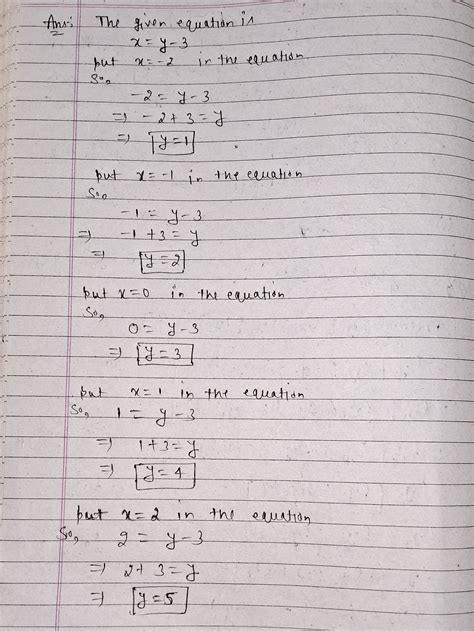 Ans:- The given equation is
x = y-3
put x = -2 in the equation
So,
-2 = y-3
⇒ -2+3 = y
⇒ y=1
put x = -1 in the equation
So,
-1 = y-3
⇒ -1+3 = y
⇒ y=2
put x=0 in the equation
So,
0 = y-3
⇒ y=3
put x=1 in the equation
So, 1 = y-3
⇒ 1+3=y
⇒ y=4
put x=2 in the equation
So, 2 = y-3
⇒ 2+3=y
⇒ y=5